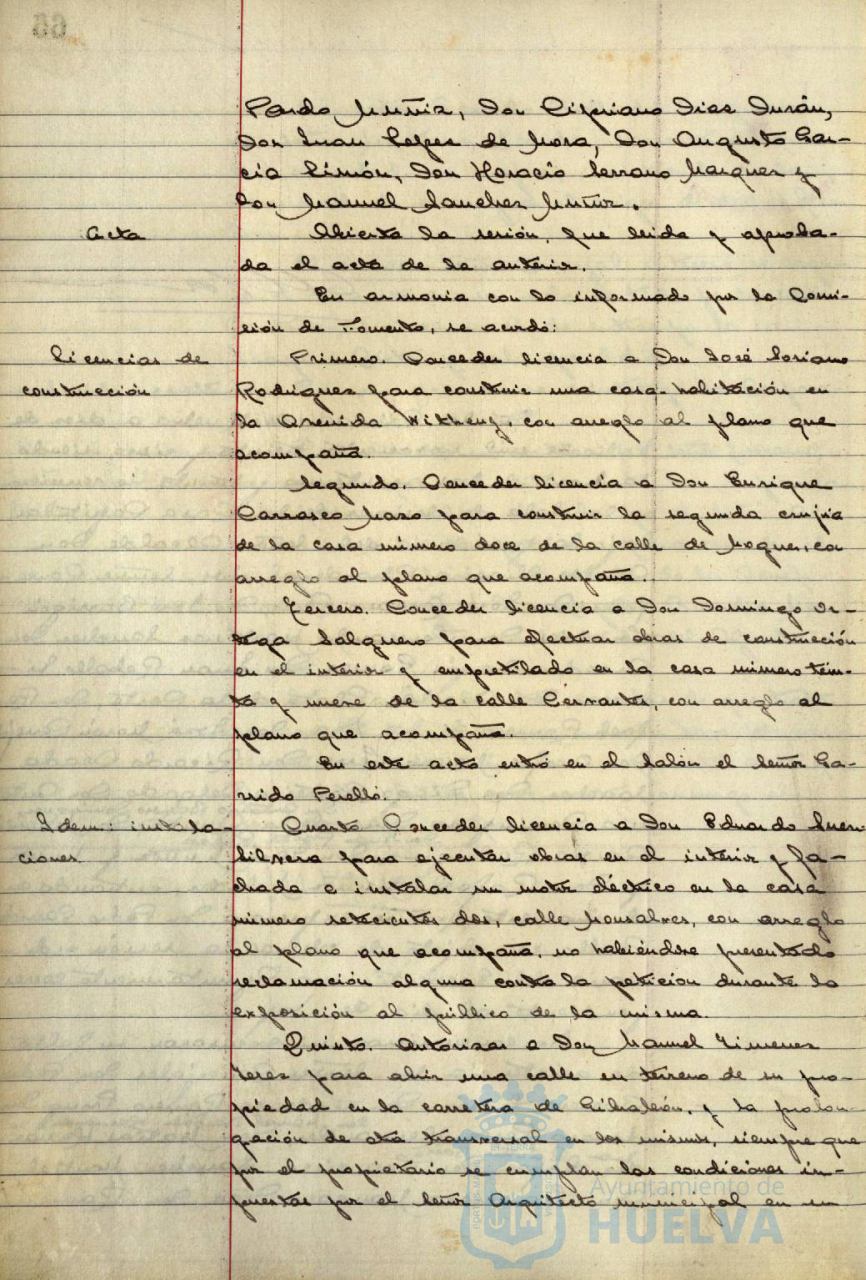 Pardo Muñiz, Don Cipriano Dias Durán,
Don Juan Lopez de Mora, Don Augusto Gar-
cia Simón, Don Horacio Serrano Marquez y
Don Manuel Sanchez Muñiz.
Acta
Abierta la sesión, fue leida y aproba-
da el acta de la anterior.
En armonia con lo informado por la Comi-
sión de Fomento, se acordó:
Licencias de
construcción
Primero. Conceder licencia a Don José Soriano
Rodriguez para construir una casa-habitación en
la Avenida con arreglo al plano que
acompaña.
Segundo. Conceder licencia a Don Enrique
Carrasco Mazo para construir la segunda crujia
de la casa número doce de la calle de Moguer, con
arreglo al plano que acompaña.
Tercero. Conceder licencia a Don Domingo Or-
tega Salguero para efectuar obras de construcción
en el interior y empretilado en la casa número trein-
ta y nueve de la calle Cervantes, con arreglo al
plano que acompaña.
En este acto entró en el Salón el Señor Ga-
rrido Perelló.
Idem: instala-
ciones
Cuarto Conceder licencia a Don Eduardo
para ejecutar obras en el interior y fa-
chada e instalar un motor eléctrico en la casa
número setecientos dos, calle Monsalves, con arreglo
al plano que acompaña, no habiéndose presentado
reclamación alguna contra la peticion durante la
exposición al público de la misma.
Quinto. Autorizar a Don Manuel Jimenez
Jerez para abrir una calle en terreno de su pro-
piedad en la carretera de Gibraleón, y la prolon-
gación de otra transversal en los mismos, siempre que
por el propietario se cumplan las condiciones im-
puestas por el Señor Arquitecto municipal en su
Ayuntamiento de
HUELVA